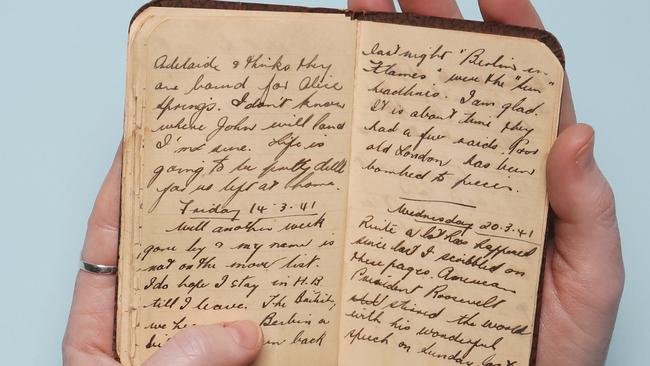 Adelaide & thinks they
are bound for Alice
Springs. I don't know
where John will land
I'm sure. Life is
going to be pretty dull
for us left at home.
Friday 14.3.41
Well another week
gone by & my name is
not on the move list.
I do hope I stay in H.B.
till I leave. The British,
we he Berlin a
back
last night "Berlin in
Flames" were the "Sun"
headlines. I am glad.
It is about time they
had a few raids. Poor
old London has been
bombed to pieces.
Wednesday 20.3.41
Quite a lot has happened
since last I scribbled on
these pages. American
President Roosevelt
has stirred the world
with his wonderful
speech on Sunday last